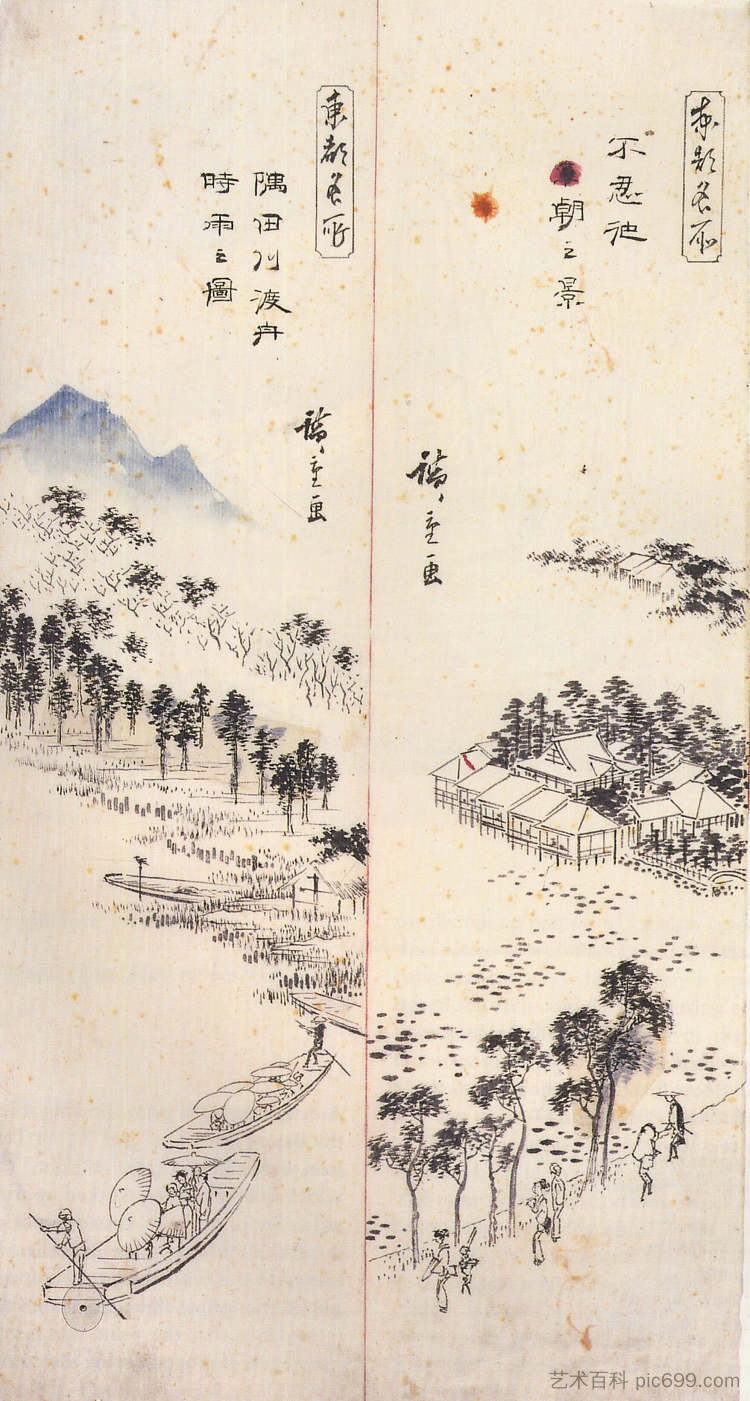 東都名所
不忍池
朝之景
廣重画
東都名所
隅田川渡舟
時雨之圖
廣重画
艺术百科 pic699.com